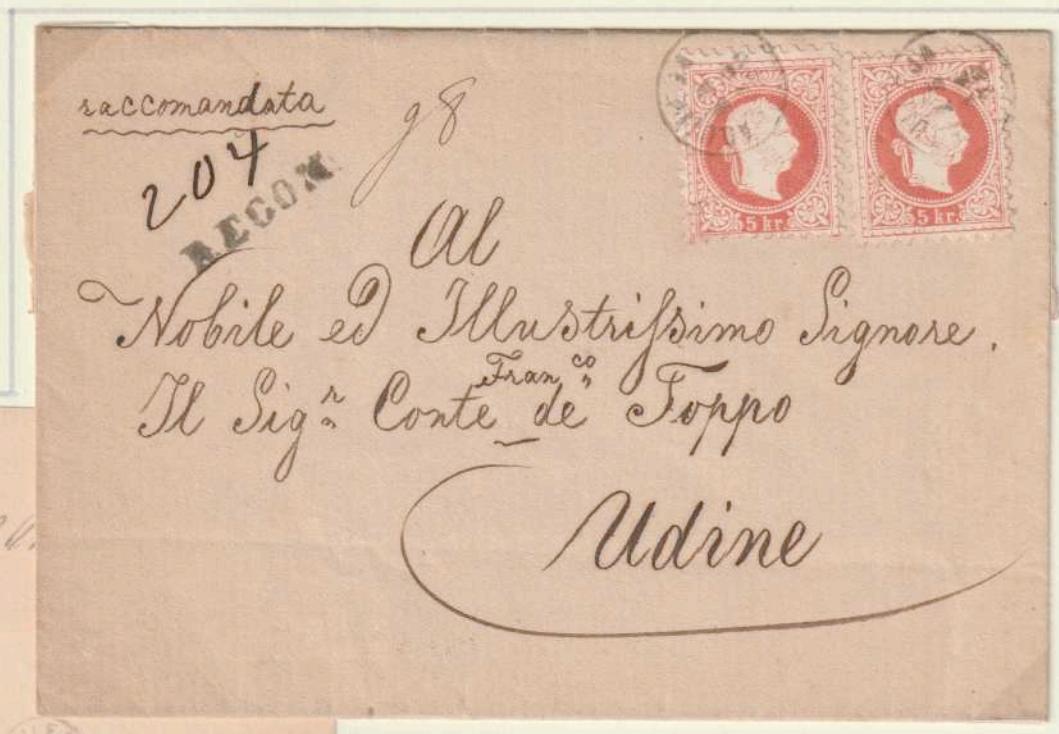 raccomandata
g8
204
RECOM
5 kr.
5 kr.
Al
Nobile ed Illustrissimo Signore.
Il Sigr Conte Franco de Toppo
Udine